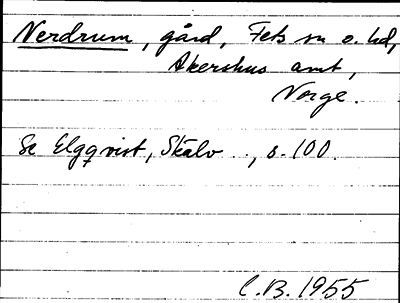 Nerdrum, gård, Fets sn o. hd,
Akershus amt,
Norge.
Se Elgqvist, Skälv ..., s. 100.
C.B. 1955